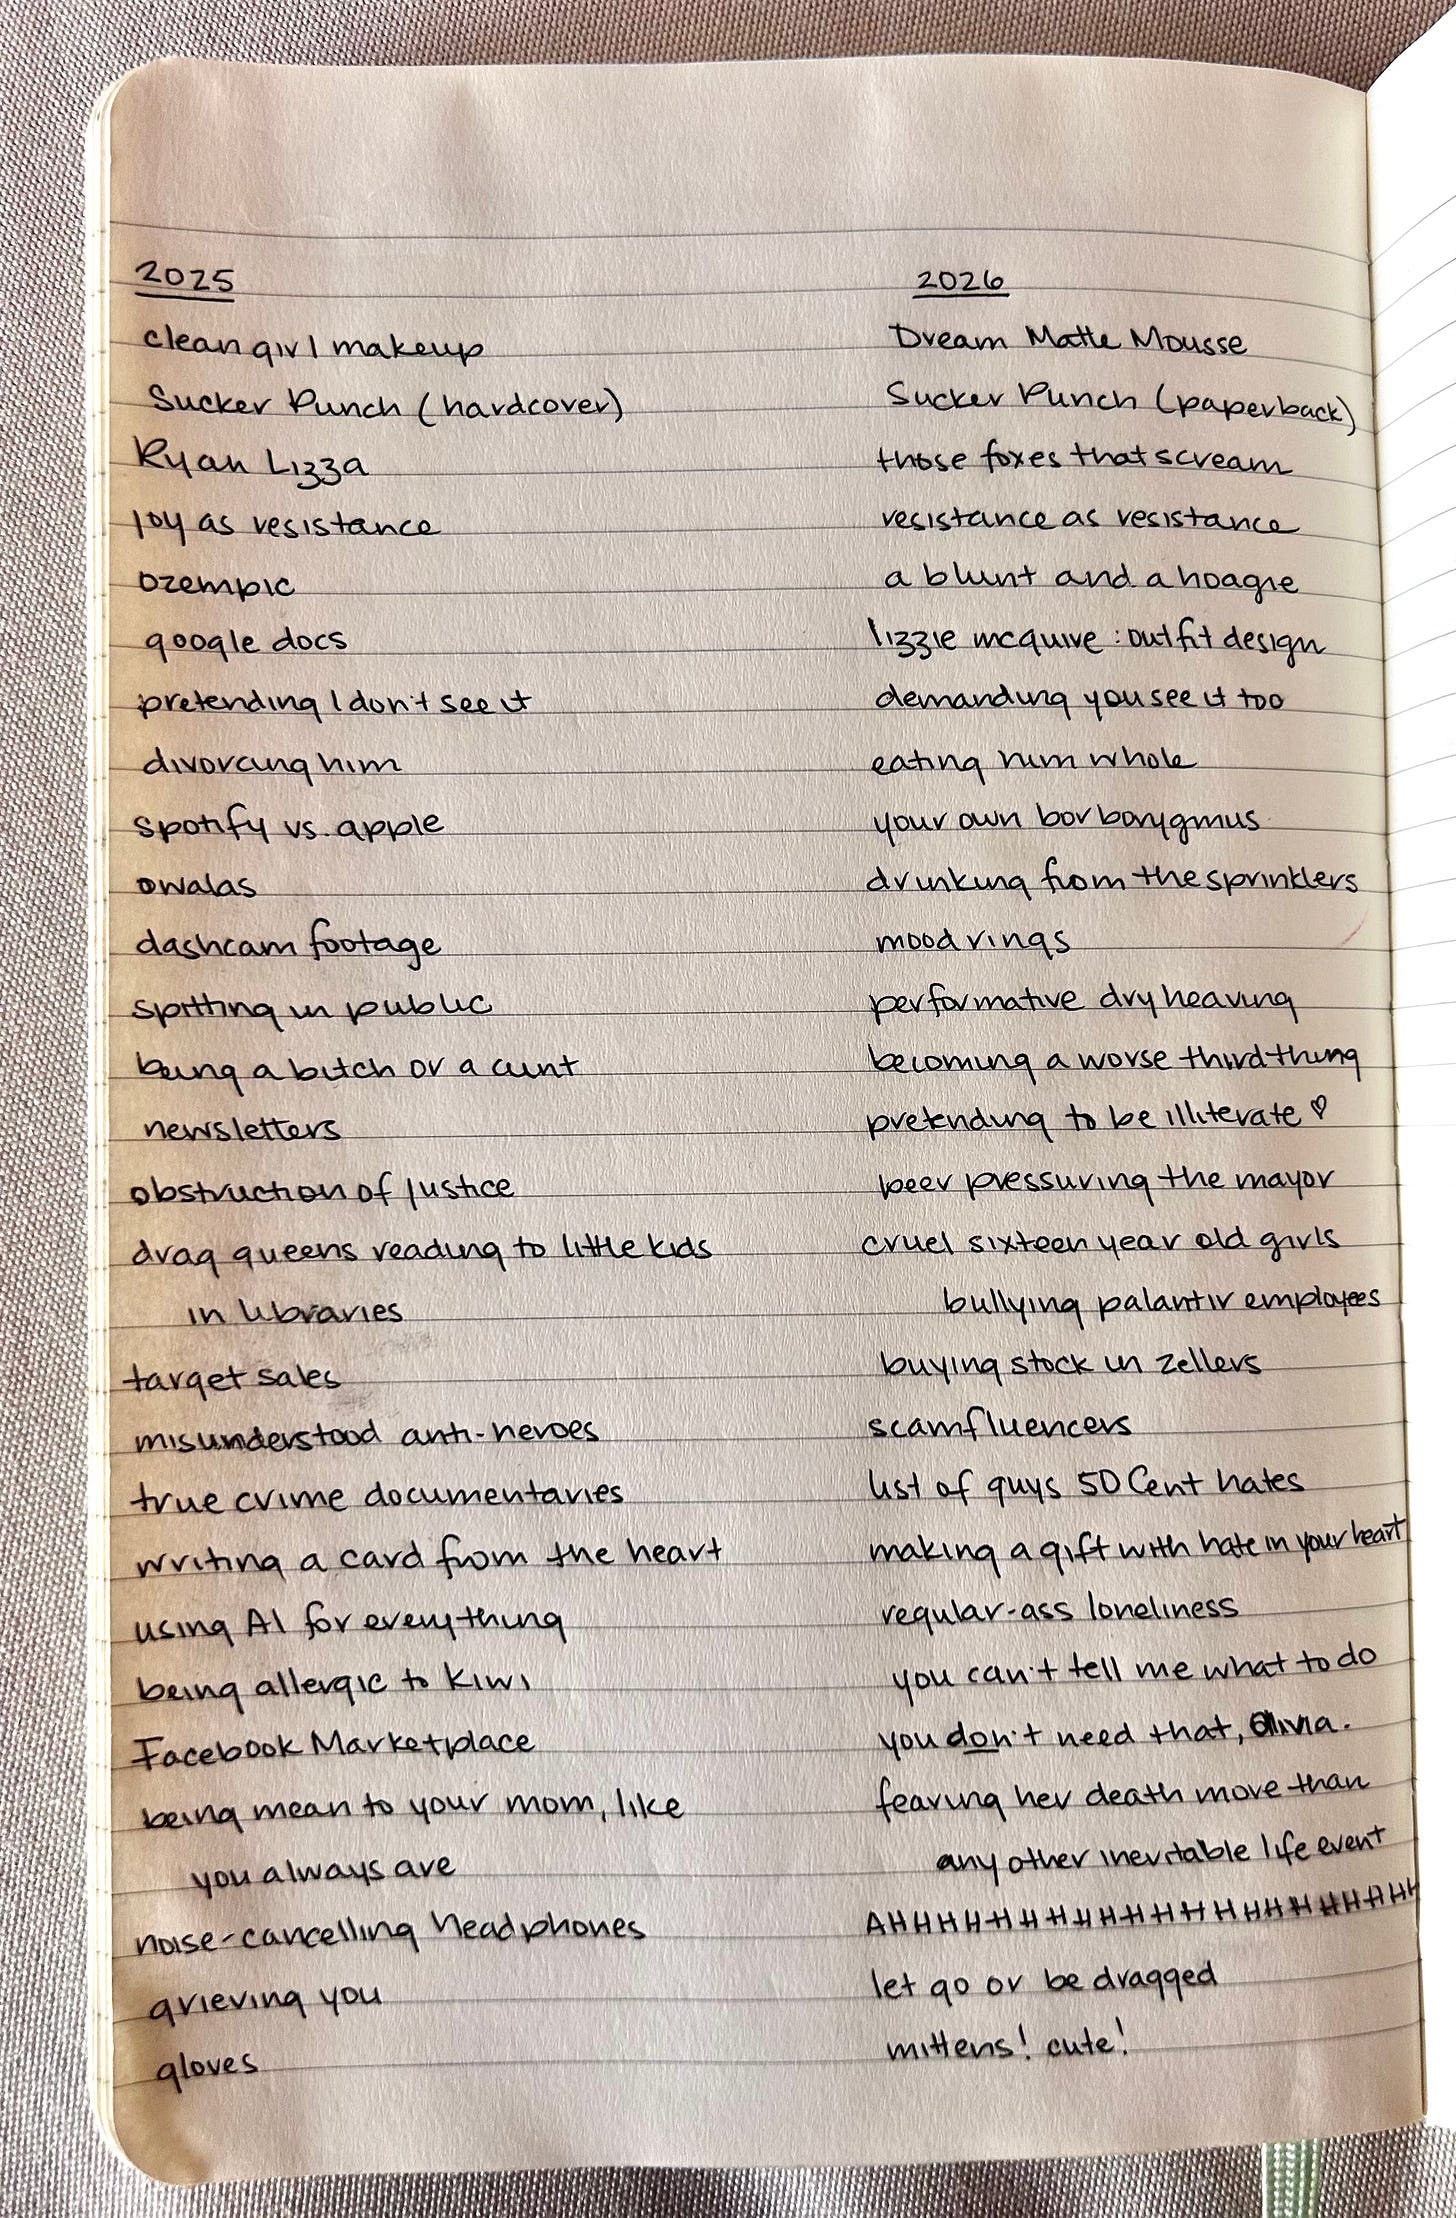 2025
clean girl makeup
Sucker Punch (hardcover)
Ryan Lizza
joy as resistance
ozempic
google docs
pretending I don't see it
divorcing him
spotify vs. apple
owalas
dashcam footage
spitting in public
being a bitch or a cunt
newsletters
obstruction of justice
drag queens reading to little kids
in libraries
target sales
misunderstood anti-heroes
true crime documentaries
writing a card from the heart
using AI for everything
being allergic to kiwi
Facebook Marketplace
being mean to your mom, like
you always are
noise-cancelling headphones
grieving you
gloves
2026
Dream Matte Mousse
Sucker Punch (paperback)
those foxes that scream
resistance as resistance
a blunt and a hoagie
lizzie mcguire : outfit design
demanding you see it too
eating him whole
your own borborygmus
drinking from the sprinklers
mood rings
performative dry heaving
becoming a worse third thing
pretending to be illiterate ♡
peer pressuring the mayor
cruel sixteen year old girls
bullying palantir employees
buying stock in zellers
scamfluencers
list of guys 50 Cent hates
making a gift with hate in your heart
regular-ass loneliness
you can't tell me what to do
you don't need that, Olivia.
fearing her death more than
any other inevitable life event
AHHHHHHHHHHHHHHHHHHHH
let go or be dragged
mittens! cute!